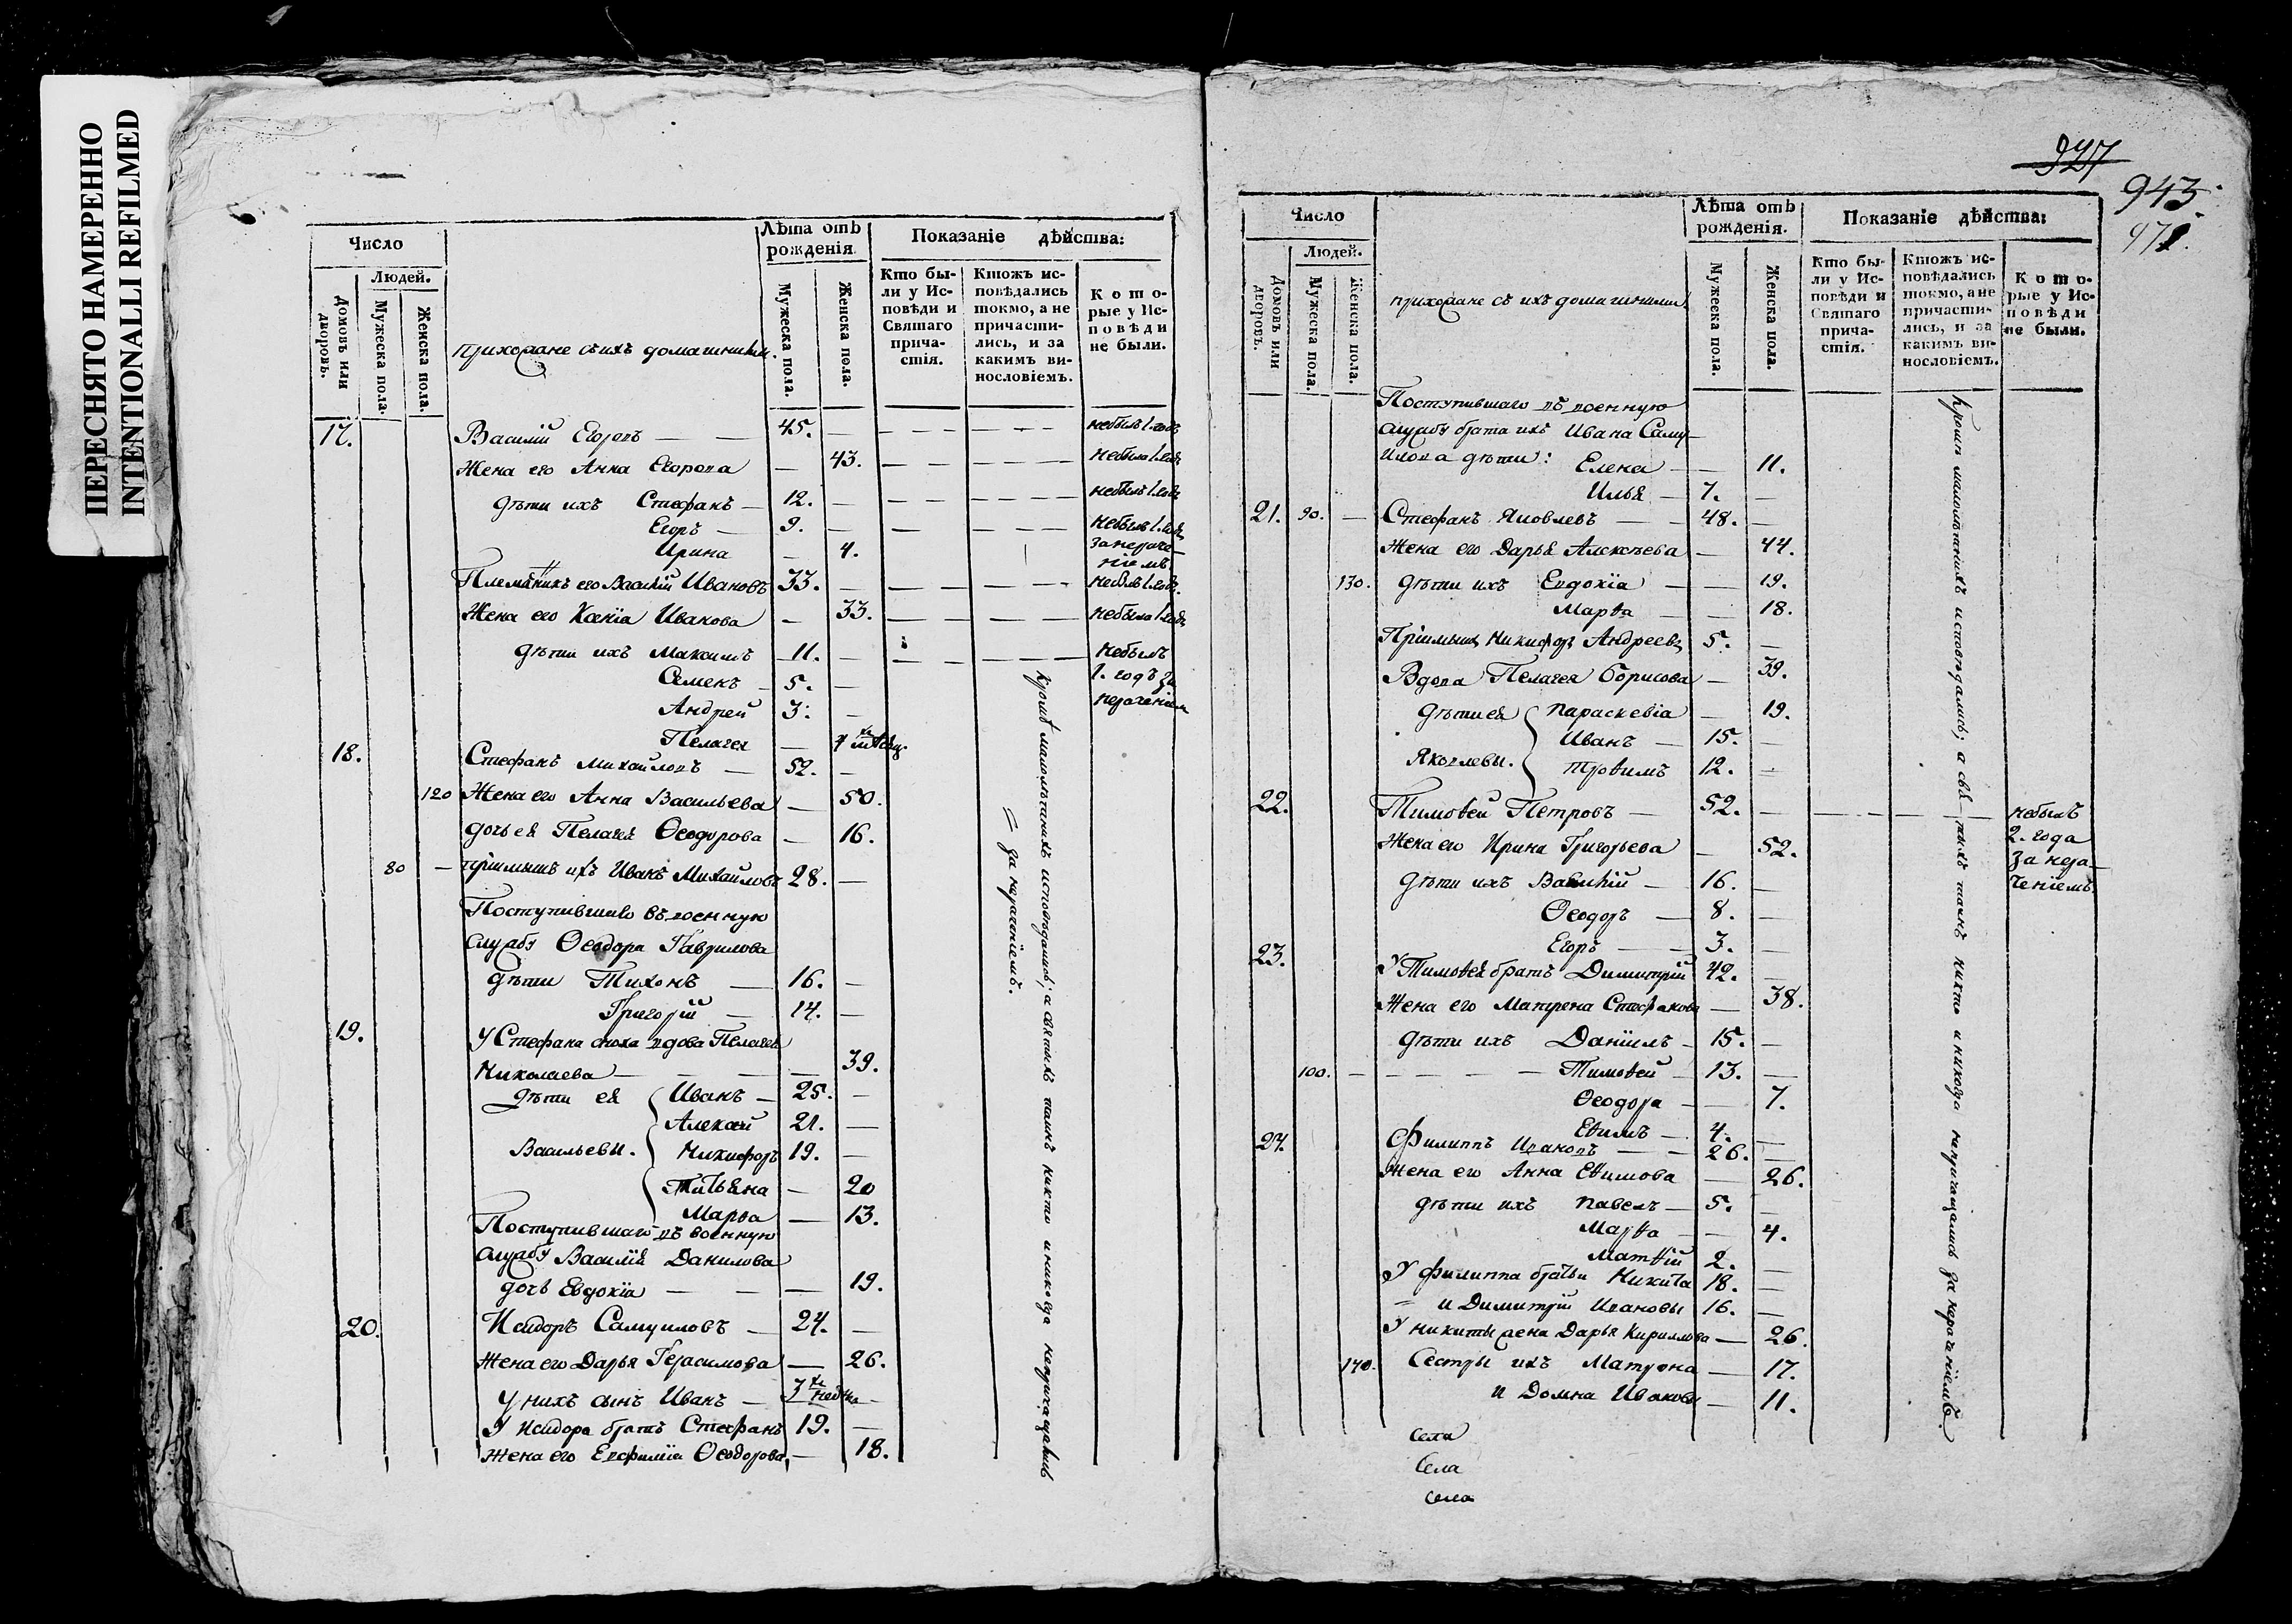 ПЕРЕСНЯТО НАМЕРЕННО
INTENTIONALLI REFILMED
Число
Людей.
Домовъ или дворовъ.
Мужеска пола.
Женска пола.
Прихожане съ ихъ домашними.
Лѣта отъ рожденія.
Мужеска пола.
Женска пола.
Показаніе дѣйства:
Кто бы-
ли у Ис-
повѣди и
Святаго
прича-
стія.
Ктожъ ис-
повѣдались
токмо, а не
причасти-
лись, и за
какимъ ви-
нословіемъ.
К о т о-
рые у Ис-
п о в ѣ д и
не были.
17. Василій Егоровъ — — 45. — небылъ 1. годъ
Жена его Анна Егорова — 43. небыла 1. годъ
дѣти ихъ Стефанъ — 12. — небылъ 1. годъ
Егоръ — 9. — небылъ 1. годъ
Ирина — 4. за нераче-
ніемъ
Племянникъ его Василій Ивановъ 33. — небылъ 1. годъ.
Жена его Ксенія Иванова — 33. небыла 1. годъ
дѣти ихъ Максимъ 11. — небылъ
Семенъ 5. — 1. годъ за
Андрей 3. — нераченіем
Пелагея —
18. Стефанъ Михайловъ — 52. —
120 Жена его Анна Васильева — 50.
дочь ея Пелагея Ѳеодорова — 16.
80 — пріимышъ ихъ Иванъ Михайловъ 28. —
Поступившаго въ военную
службу Ѳеодора Гаврилова
дѣти Тихонъ — 16. —
Григорій — 14. —
19. У Стефана сноха вдова Пелагея
Николаева — — — — 39.
дѣти ея Иванъ — 25. —
Алексѣй 21. —
Васильевы. Никифоръ 19. —
Татьяна — 20
Марѳа — 13.
Поступившаго въ военную
службу Василія Данилова
дочь Евдокіа — — — 19.
20. Исидоръ Самуиловъ — 24. —
Жена его Дарья Герасимова — 26.
у нихъ сынъ Иванъ — 3 недѣли —
У Исидора братъ Стефанъ 19. —
Жена его Евфиміа Ѳеодорова — 18.
кромѣ малолѣтнихъ исповѣдались; а святыхъ таинъ никто и никогда непричащались
= за нераченіемъ.
927
943.
971.
Число
Людей.
Домовъ или дворовъ.
Мужеска пола.
Женска пола.
прихожане съ ихъ домашними
Лѣта отъ рожденія.
Мужеска пола.
Женска пола.
Показаніе дѣйства:
Кто бы-
ли у Ис-
повѣди и
Святаго
прича-
стія.
Ктожъ ис-
повѣдались
токмо, а не
причасти-
лись, и за
какимъ ви-
нословіемъ.
К о т о-
рые у Ис-
п о в ѣ д и
не были.
Поступившаго въ военную
службу брата ихъ Ивана Саму-
илова дѣти: Елена — — 11.
Илья — 7. —
21. 90. — Стефанъ Яковлевъ — — 48. —
Жена его Дарья Алексѣева — 44.
130. дѣти ихъ Евдокіа — — 19.
Марѳа — 18.
Пріимышъ Никифоръ Андреевъ 5. —
Вдова Пелагея Борисова — 39.
дѣти ея Параскевіа — 19.
Иванъ — 15. —
Яковлевы. Трофимъ 12. —
22. Тимоѳей Петровъ — 52. — небылъ
2. года
за нера-
ченіемъ
Жена его Ирина Григорьева — 52.
дѣти ихъ Василій — 16. —
Ѳеодоръ — 8. —
Егоръ — — 3. —
23. У Тимоѳея братъ Димитрій 42. —
Жена его Матрена Стефанова — 38.
дѣти ихъ Даніилъ — 15. —
100. — — — — — Тимоѳей — 13. —
Ѳеодора — — 7.
Еѳимъ — 4. —
24. Филиппъ Ивановъ — — 26. —
Жена его Анна Еѳимова — 26.
дѣти ихъ Павелъ — 5. —
Марѳа — — 4.
Матѳій 2. —
У Филиппа братьи Никита 18. —
= и Димитрій Ивановы 16. —
У Никиты жена Дарья Кириллова — 26.
140. Сестры ихъ Матрона — 17.
и Домна Ивановы — 11.
кромѣ малолѣтнихъ исповѣдались; а святыхъ таинъ никто и никогда непричащались за нераченіемъ.
Села
Села
Села